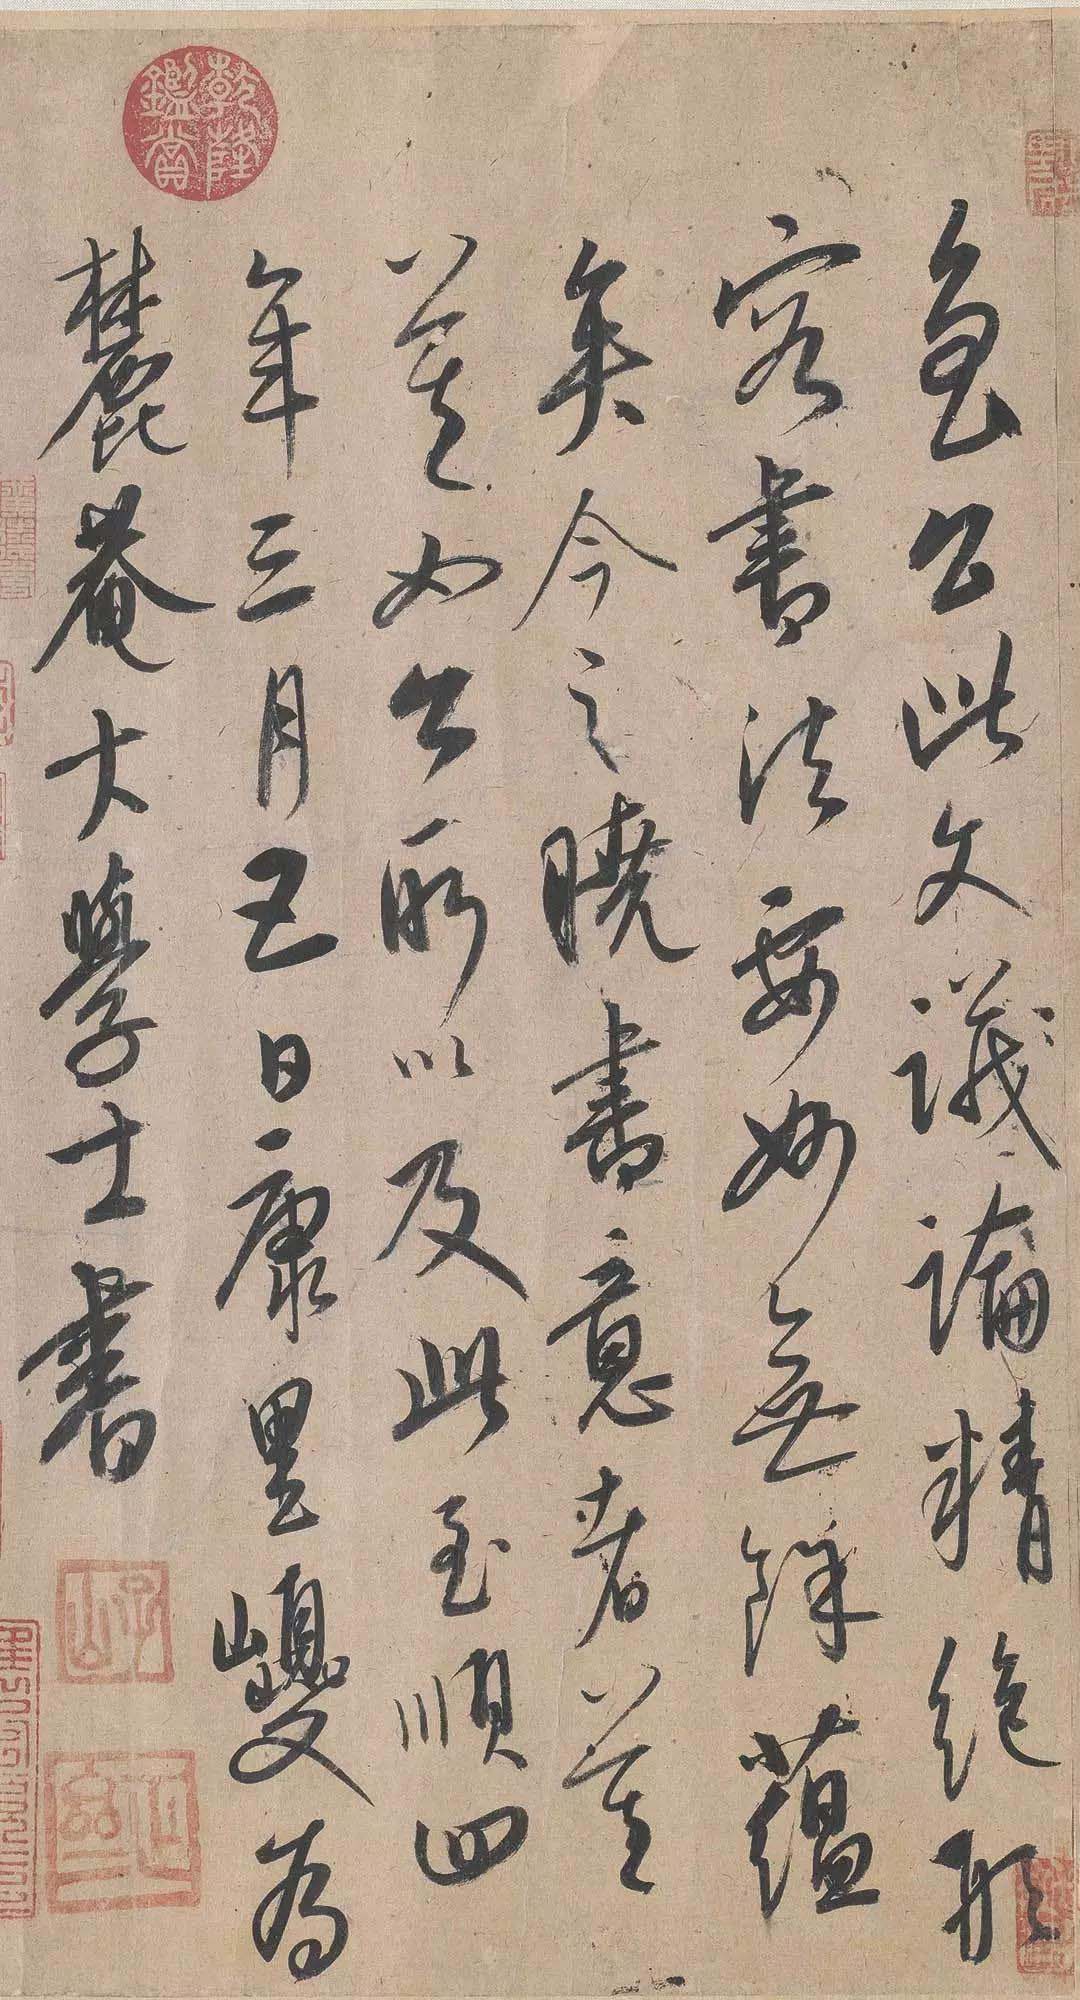 魯公此文議論精絶形
容書法要妙無餘蘊
矣今之曉書意者
莫如公所以及此至順四
年三月五日康里巎為
麓菴大學士書
乾隆
鑑賞
子山